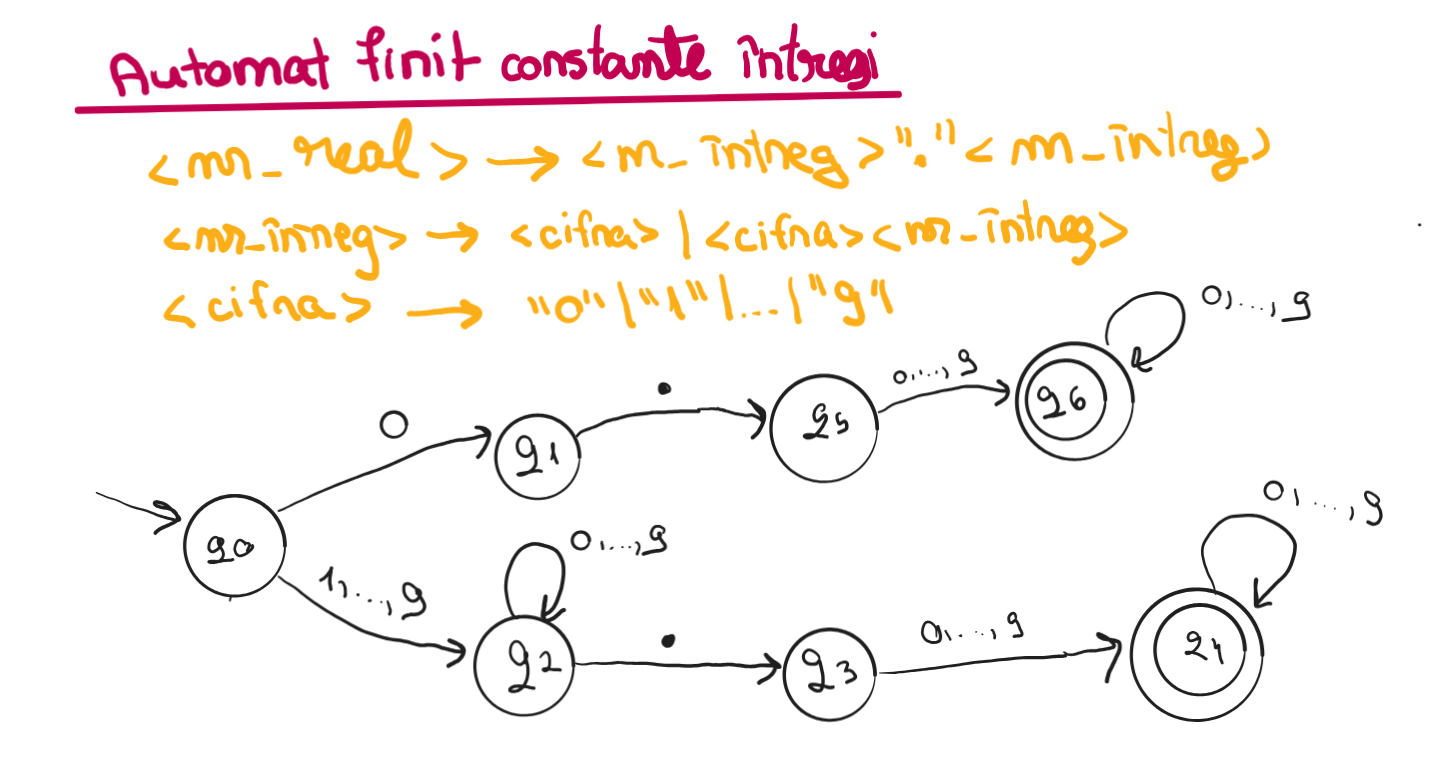 Automat finit constante întregi
<nr_real> → <nr_întreg>"."<nr_întreg>
<nr_înneg> → <cifra> | <cifra><nr_întreg>
<cifra> → "0" | "1" | ... | "9"
0,...,9
0,...,9
.
0
q6
q5
q1
0,...,9
0,...,9
q0
1,...,9
0,...,9
.
q2
q3
q4